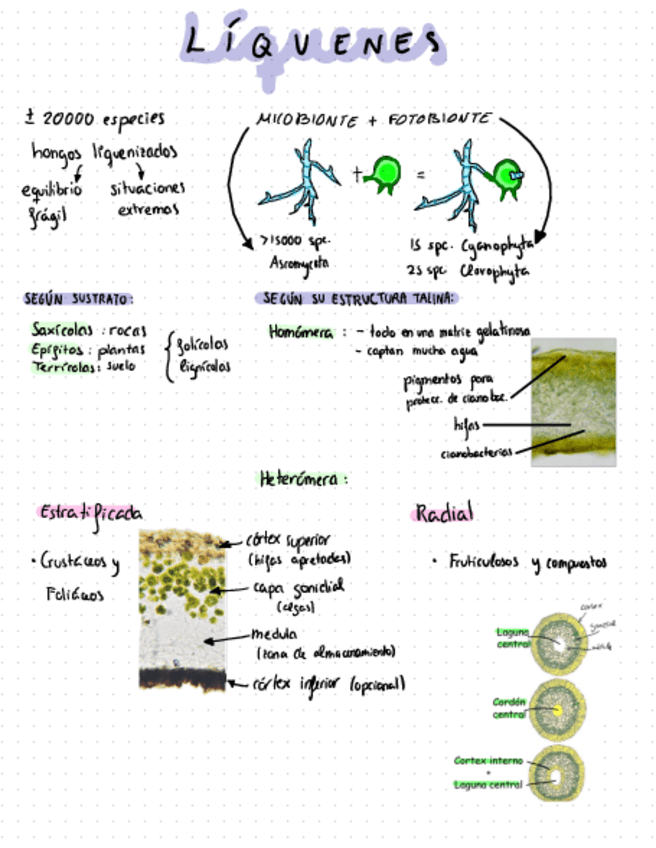 LÍQUENES
± 20000 especies
hongos liquenizados
equilibrio frágil
situaciones extremas
MICOBIONTE + FOTOBIONTE
+ =
>15000 spc.
Ascomycota
15 spc. Cyanophyta
25 spc Clorophyta
SEGÚN SUSTRATO:
Saxícolas : rocas
Epífitos : plantas
Terrícolas : suelo
folícolas
lignícolas
SEGÚN SU ESTRUCTURA TALINA:
Homómera : - todo en una matriz gelatinosa
- captan mucha agua
pigmentos para
protecc. de cianobac.
hifas
cianobacterias
Heterómera :
Estratificada
• Crustáceos y
Foliáceos
córtex superior
(hifas apretadas)
capa gonidial
(algas)
medula
(zona de almacenamiento)
córtex inferior (opcional)
Radial
• Fruticulosos y compuestos
cortex
gonidial
médula
Laguna
central
Cordón
central
Cortex interno
+
Laguna central